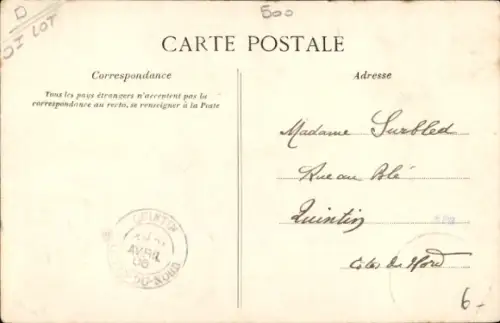 D
DI LOT
500
CARTE POSTALE
Correspondance
Tous les pays étrangers n'acceptent pas la
correspondance au recto, se renseigner à la Poste
Adresse
Madame Surbled
Rue au Blé
Quintin
Côtes du Nord
QUINTIN
AVRIL
06
DU-NORD
6-